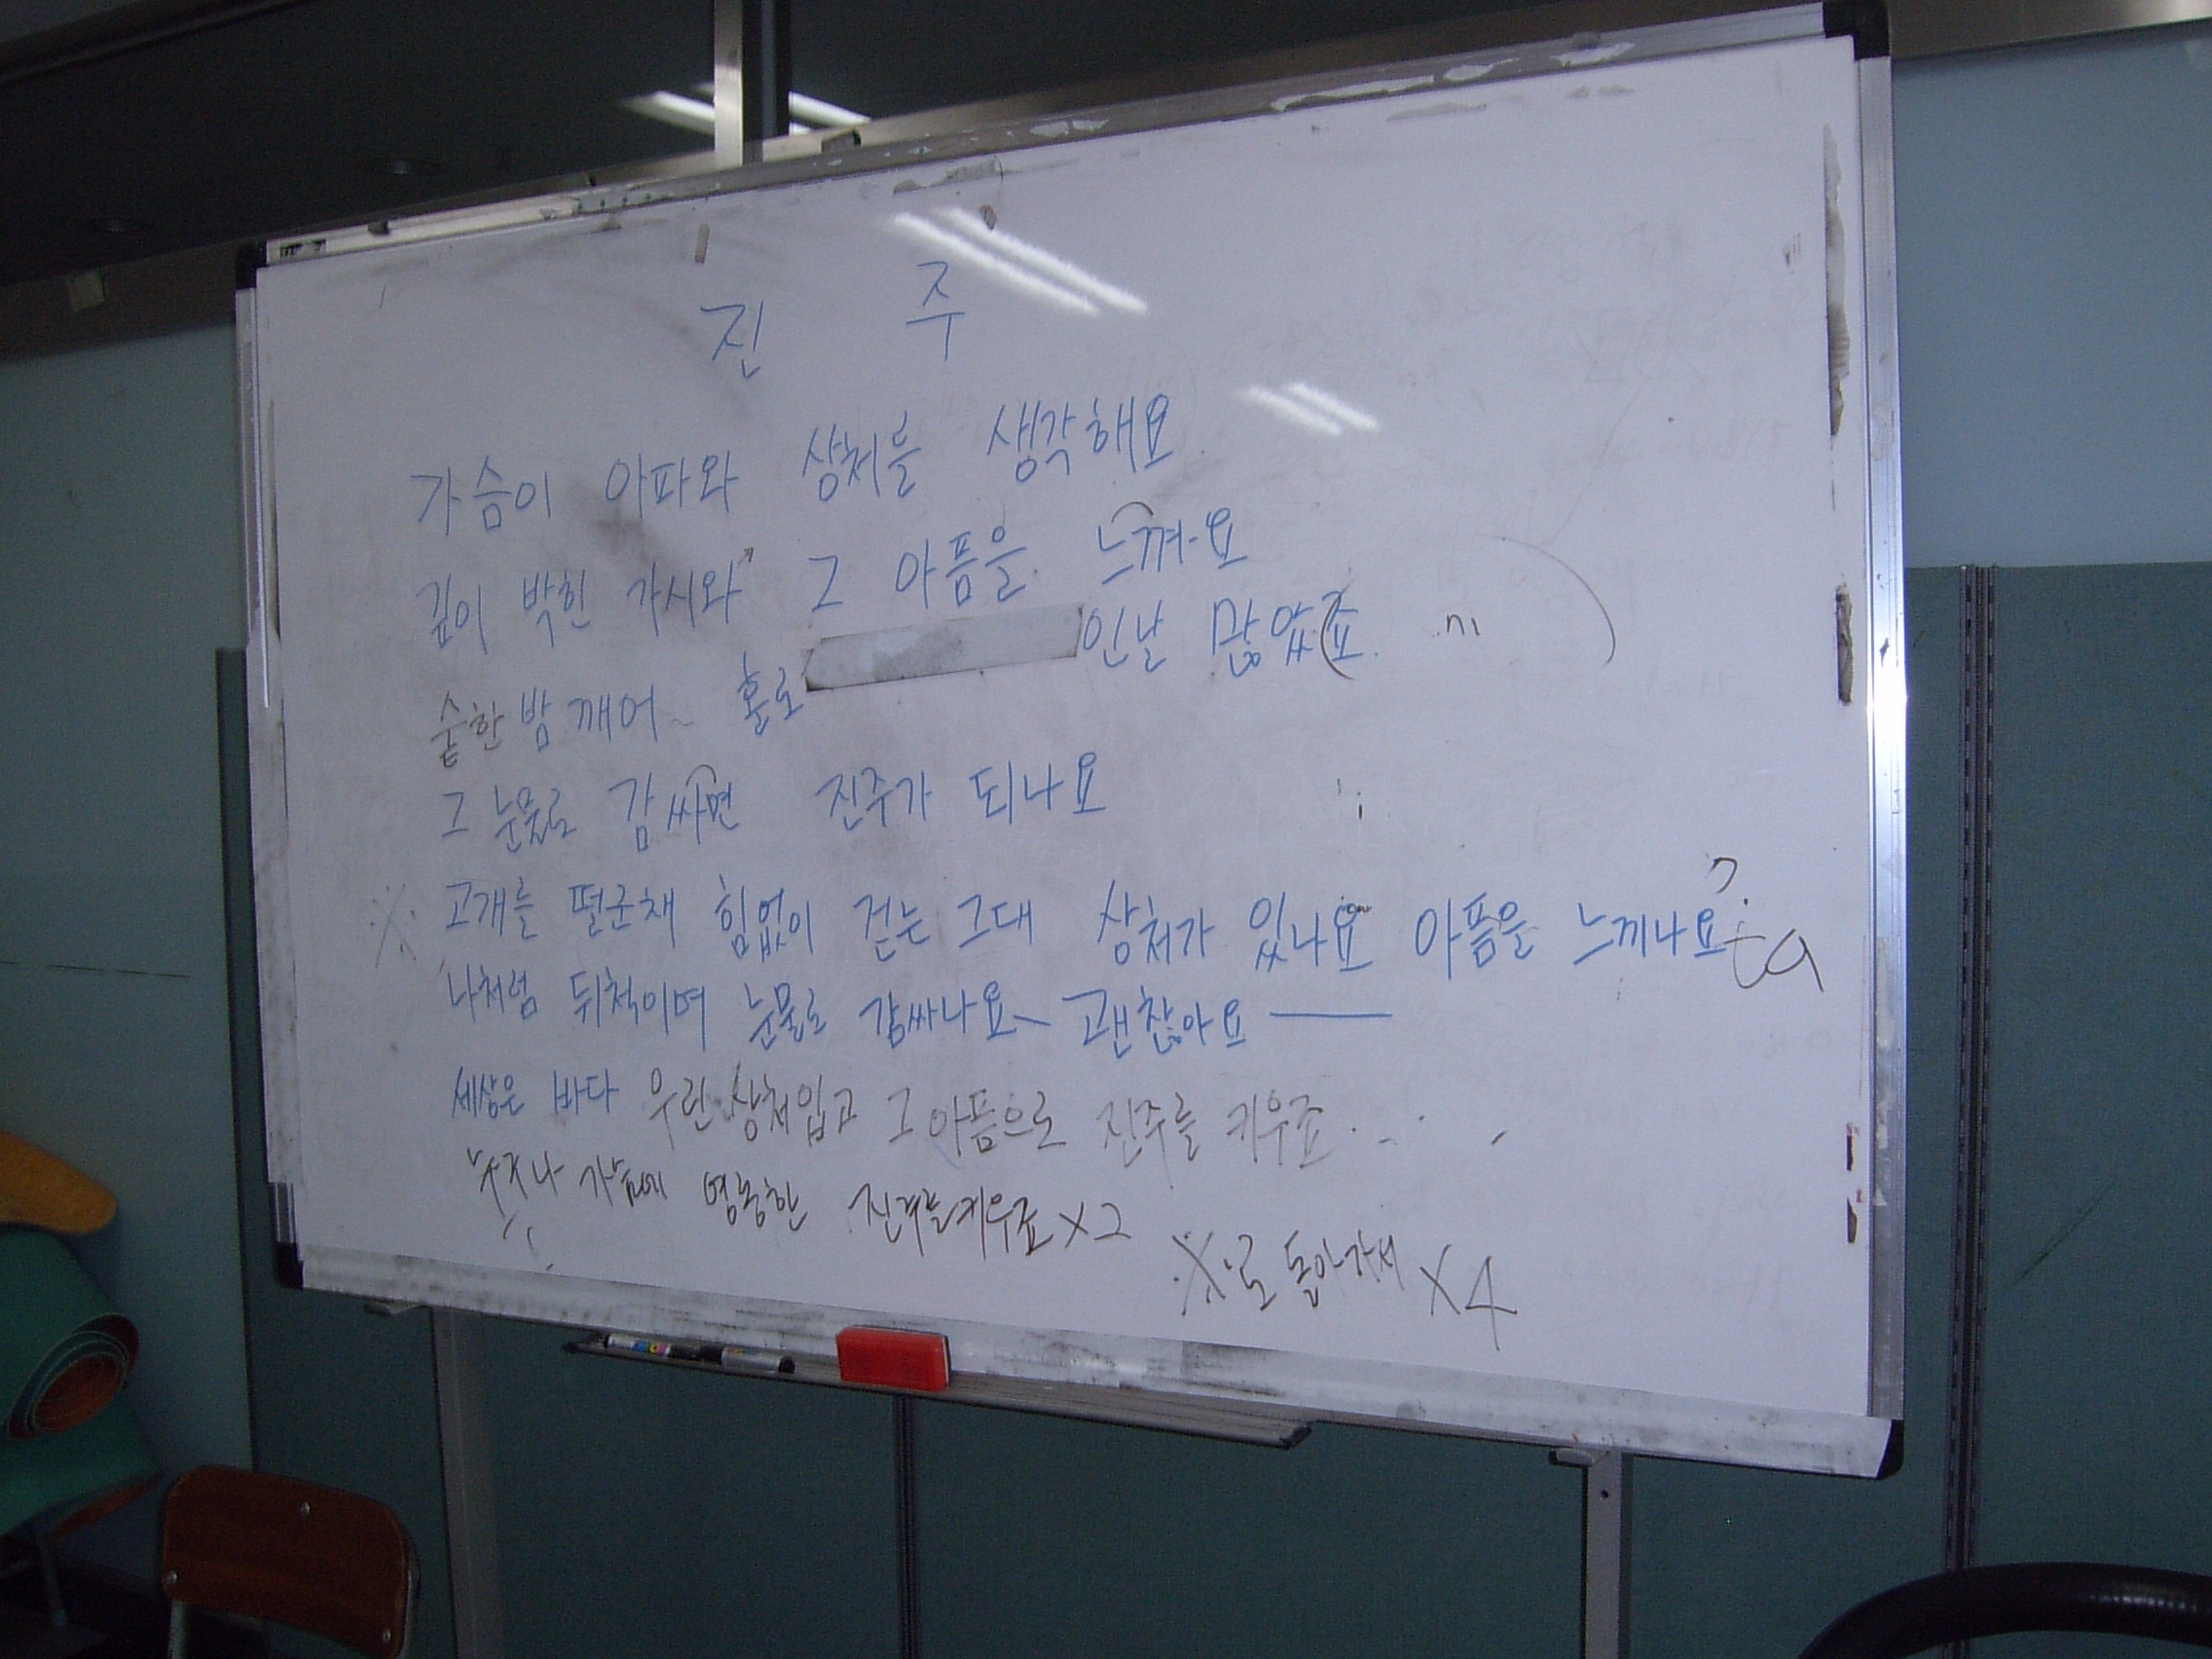 진 주
가슴이 아파와 상처를 생각해요
깊이 박힌 가시와 그 아픔을 느껴요
숱한 밤 깨어 홀로 인날 많았죠 ni
그 눈물로 감싸면 진주가 되나요
※ 고개를 떨군채 힘없이 걷는 그대 상처가 있나요 아픔을 느끼나요
나처럼 뒤척이며 눈물로 감싸나요 괜찮아요
세상은 바다 우린 상처입고 그 아픔으로 진주를 키우죠
누구나 가슴에 영롱한 진주를 키우죠 ×2
※로 돌아가서 ×4